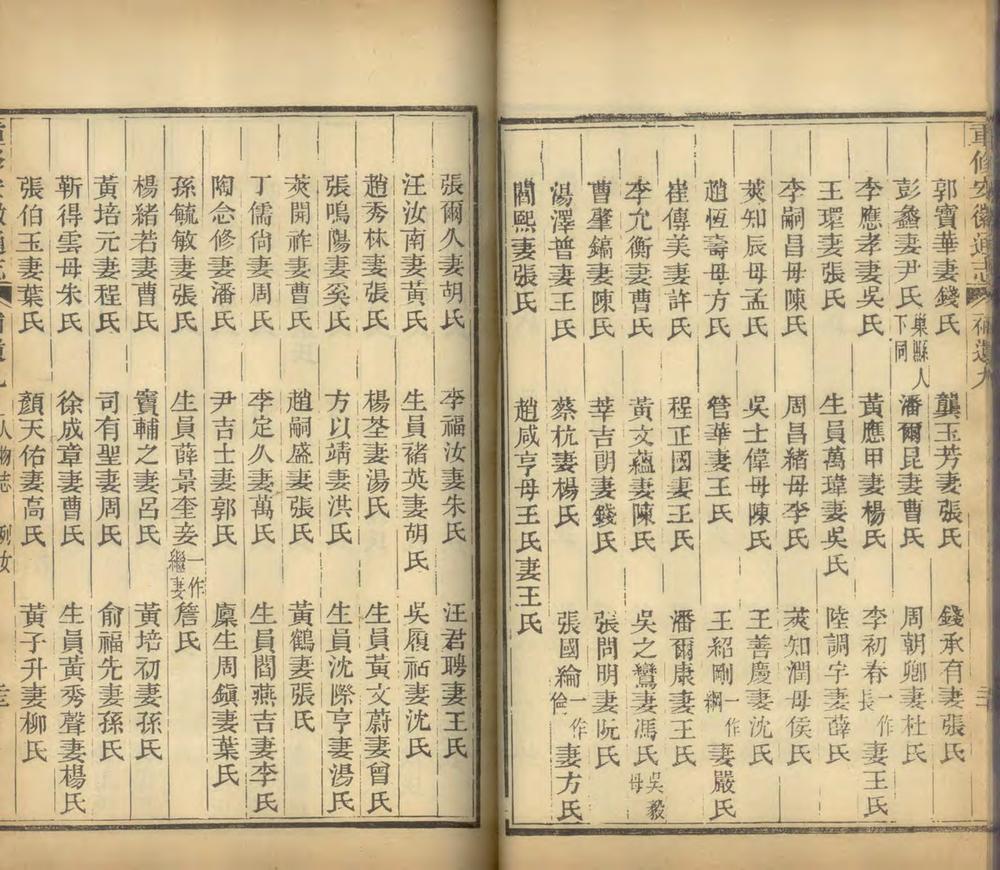 重修安徽通志 補遺九 三
郭寶華妻錢氏 龔玉芳妻張氏 錢承有妻張氏
彭蠡妻尹氏 巢縣人下同 潘爾昆妻曹氏 周朝卿妻杜氏
李應孝妻吳氏 黃應甲妻楊氏 李初春 一作長 妻王氏
王環妻張氏 生員萬瑋妻吳氏 陸調宇妻薛氏
李嗣昌母陳氏 周昌緒母李氏 莢知潤母侯氏
莢知辰母孟氏 吳士偉母陳氏 王善慶妻沈氏
趙恆壽母方氏 管華妻王氏 王紹剛 一作綱 妻嚴氏
崔傳美妻許氏 程正國妻王氏 潘爾康妻王氏
李允衡妻曹氏 黃文蘊妻陳氏 吳之鸞妻馮氏 吳毅母
曹肇鎬妻陳氏 莘吉朗妻錢氏 張問明妻阮氏
湯澤普妻王氏 蔡杭妻楊氏 張國綸 一作倫 妻方氏
閻熙妻張氏 趙咸亨母王氏妻王氏
張爾久妻胡氏 李福汝妻朱氏 汪君聘妻王氏
汪汝南妻黃氏 生員褚英妻胡氏 吳履祏妻沈氏
趙秀林妻張氏 楊荃妻湯氏 生員黃文蔚妻曾氏
張鳴陽妻奚氏 方以靖妻洪氏 生員沈際亨妻湯氏
莢開祚妻曹氏 趙嗣盛妻張氏 黃鶴妻張氏
丁儒尙妻周氏 李定久妻萬氏 生員閻燕吉妻李氏
陶念修妻潘氏 尹吉士妻郭氏 廩生周鎭妻葉氏
孫毓敏妻張氏 生員薛景奎妾 一作繼妻 詹氏
楊緒若妻曹氏 竇輔之妻呂氏 黃培初妻孫氏
黃培元妻程氏 司有聖妻周氏 俞福先妻孫氏
靳得雲母朱氏 徐成章妻曹氏 生員黃秀聲妻楊氏
張伯玉妻葉氏 顏天佑妻高氏 黃子升妻柳氏
人物志 列女